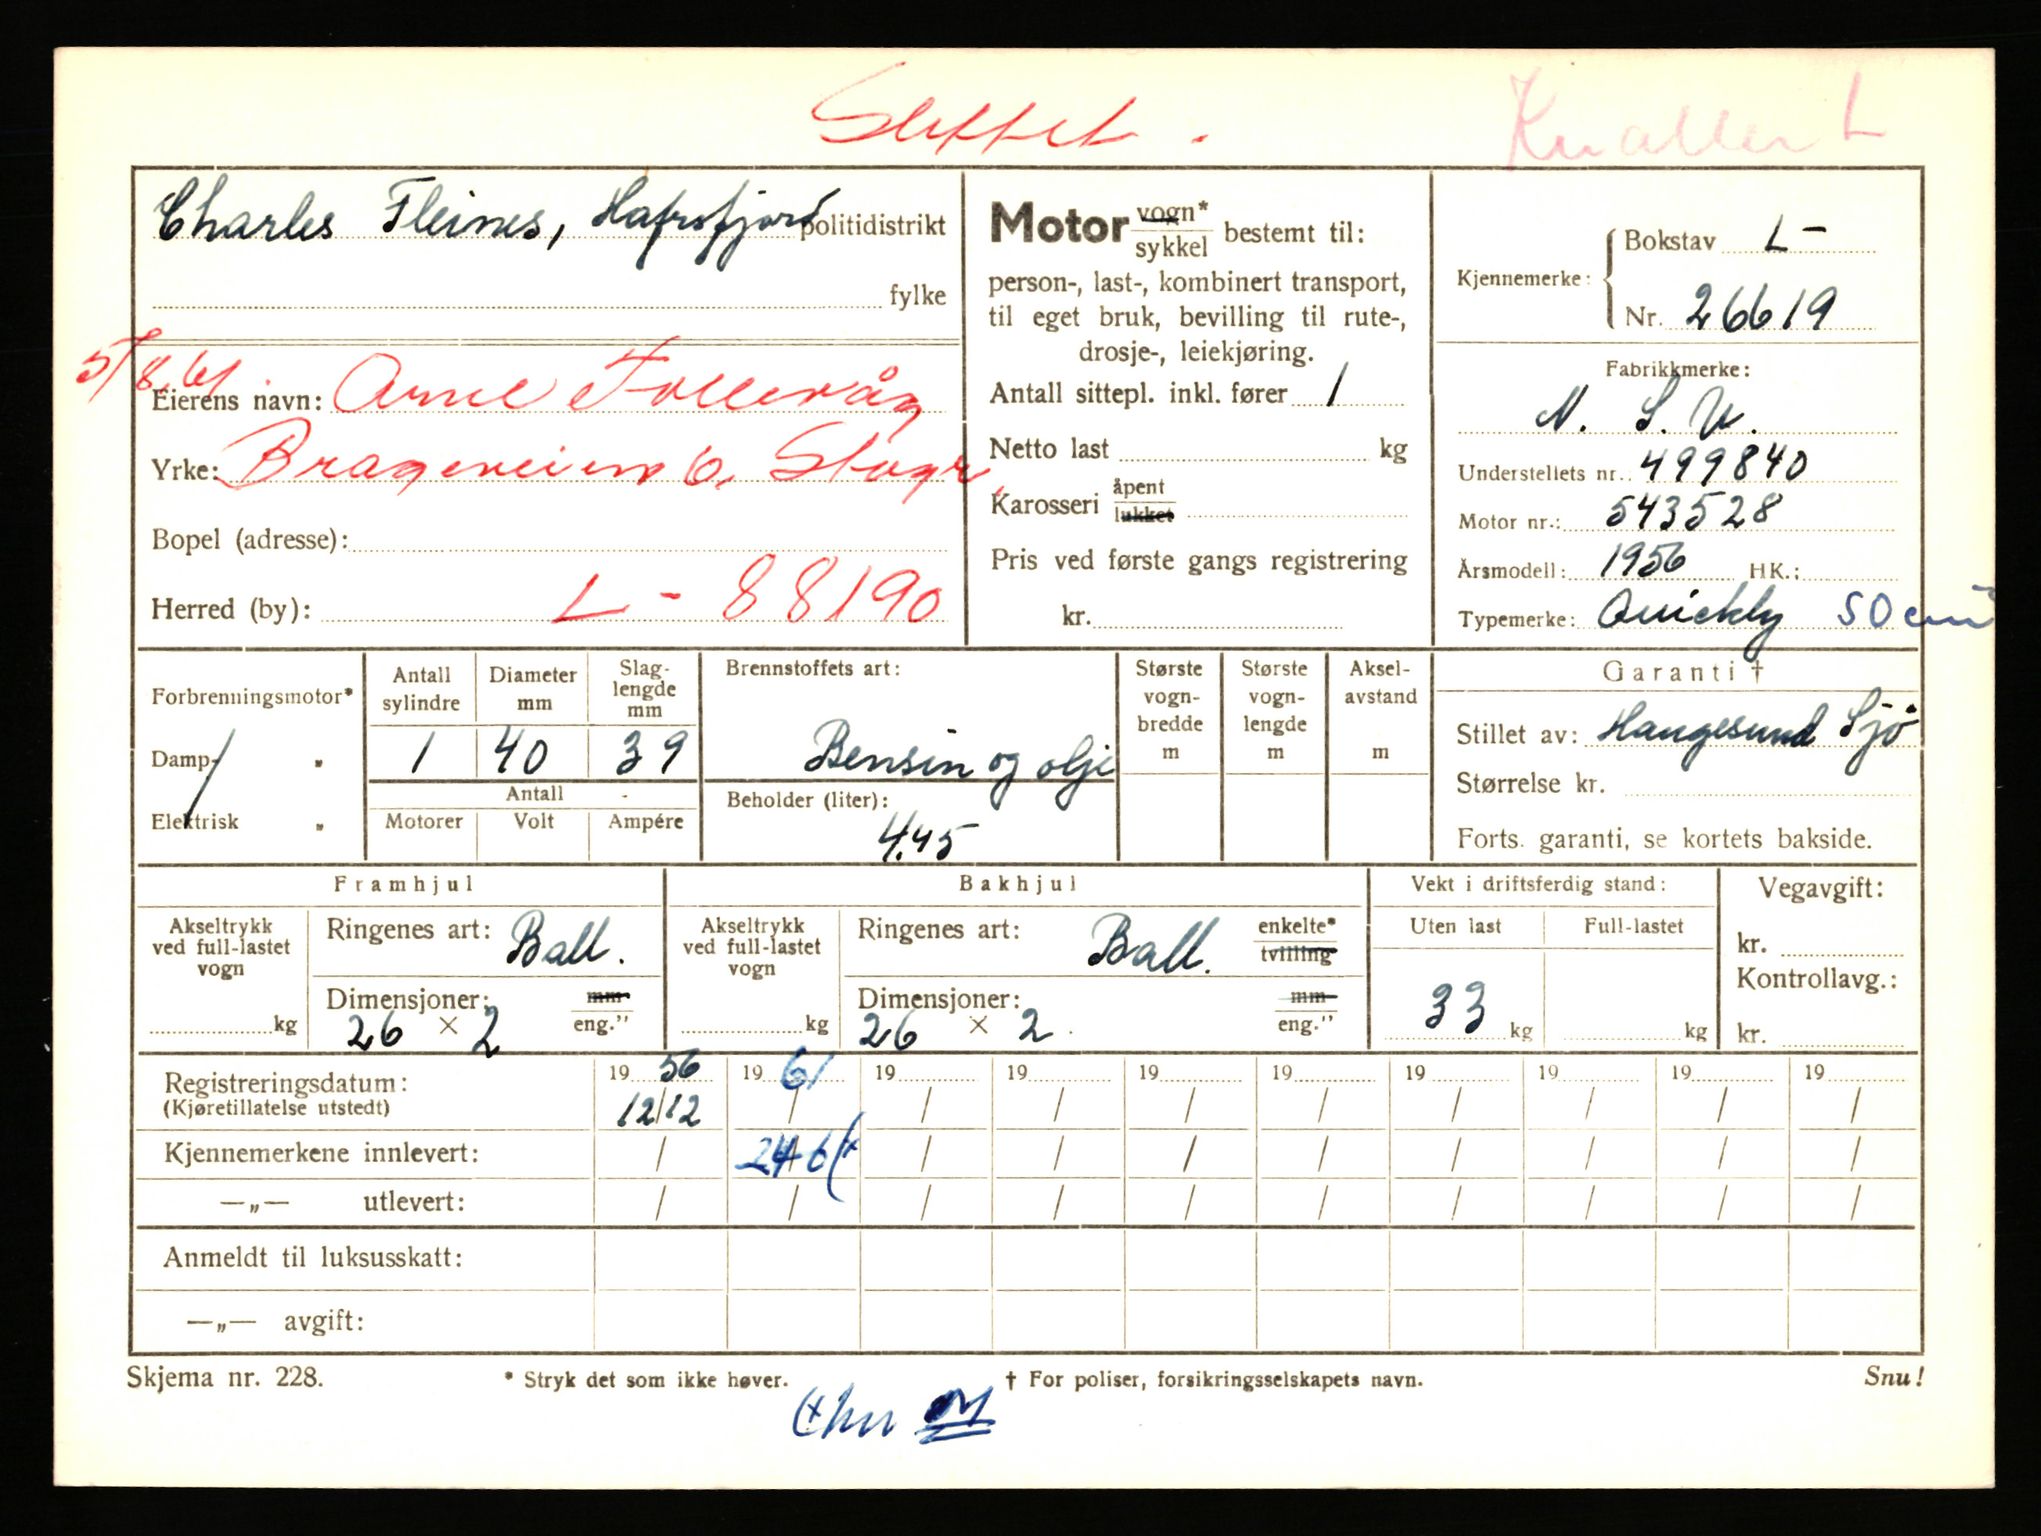 Slettet.
Knallert
Charles Fleines, Hafrsfjord politidistrikt
fylke
5/8.61.
Eierens navn: Arne Follevåg
Yrke: Brageveien 6, Stvgr.
Bopel (adresse):
Herred (by): L - 88190
Motor vogn*
sykkel bestemt til:
person-, last-, kombinert transport,
til eget bruk, bevilling til rute-,
drosje-, leiekjøring.
Antall sittepl. inkl. fører 1
Netto last kg
Karosseri åpent
lukket
Pris ved første gangs registrering
kr.
Kjennemerke:
Bokstav L-
Nr. 26619
Fabrikkmerke:
N. S. U.
Understellets nr.: 499840
Motor nr.: 543528
Årsmodell: 1956 HK.:
Typemerke: Quickly 50 cm³
Forbrenningsmotor*
Damp- „
Elektrisk „
Antall sylindre
Diameter mm
Slag-lengde mm
1 40 39
Antall
Motorer Volt Ampére
Brennstoffets art:
Bensin og olje
Beholder (liter):
4.45
Største vogn-bredde m
Største vogn-lengde m
Aksel-avstand m
Garanti †
Stillet av: Haugesund Sjø
Størrelse kr.
Forts. garanti, se kortets bakside.
Framhjul
Akseltrykk ved full-lastet vogn
kg
Ringenes art: Ball.
Dimensjoner: mm
26 × 2 eng."
Bakhjul
Akseltrykk ved full-lastet vogn
kg
Ringenes art: Ball. enkelte*
tvilling
Dimensjoner: mm
26 × 2. eng."
Vekt i driftsferdig stand:
Uten last Full-lastet
33 kg kg
Vegavgift:
kr.
Kontrollavg.:
kr.
Registreringsdatum: 19 56 19 61 19 19 19 19 19 19 19 19
(Kjøretillatelse utstedt) 12/12 / / / / / / / / /
Kjennemerkene innlevert: / 24/6 (x / / / / / / / /
—„— utlevert: / / / / / / / / / /
Anmeldt til luksusskatt:
—„— avgift:
Skjema nr. 228.
* Stryk det som ikke høver.
† For poliser, forsikringsselskapets navn.
Snu!